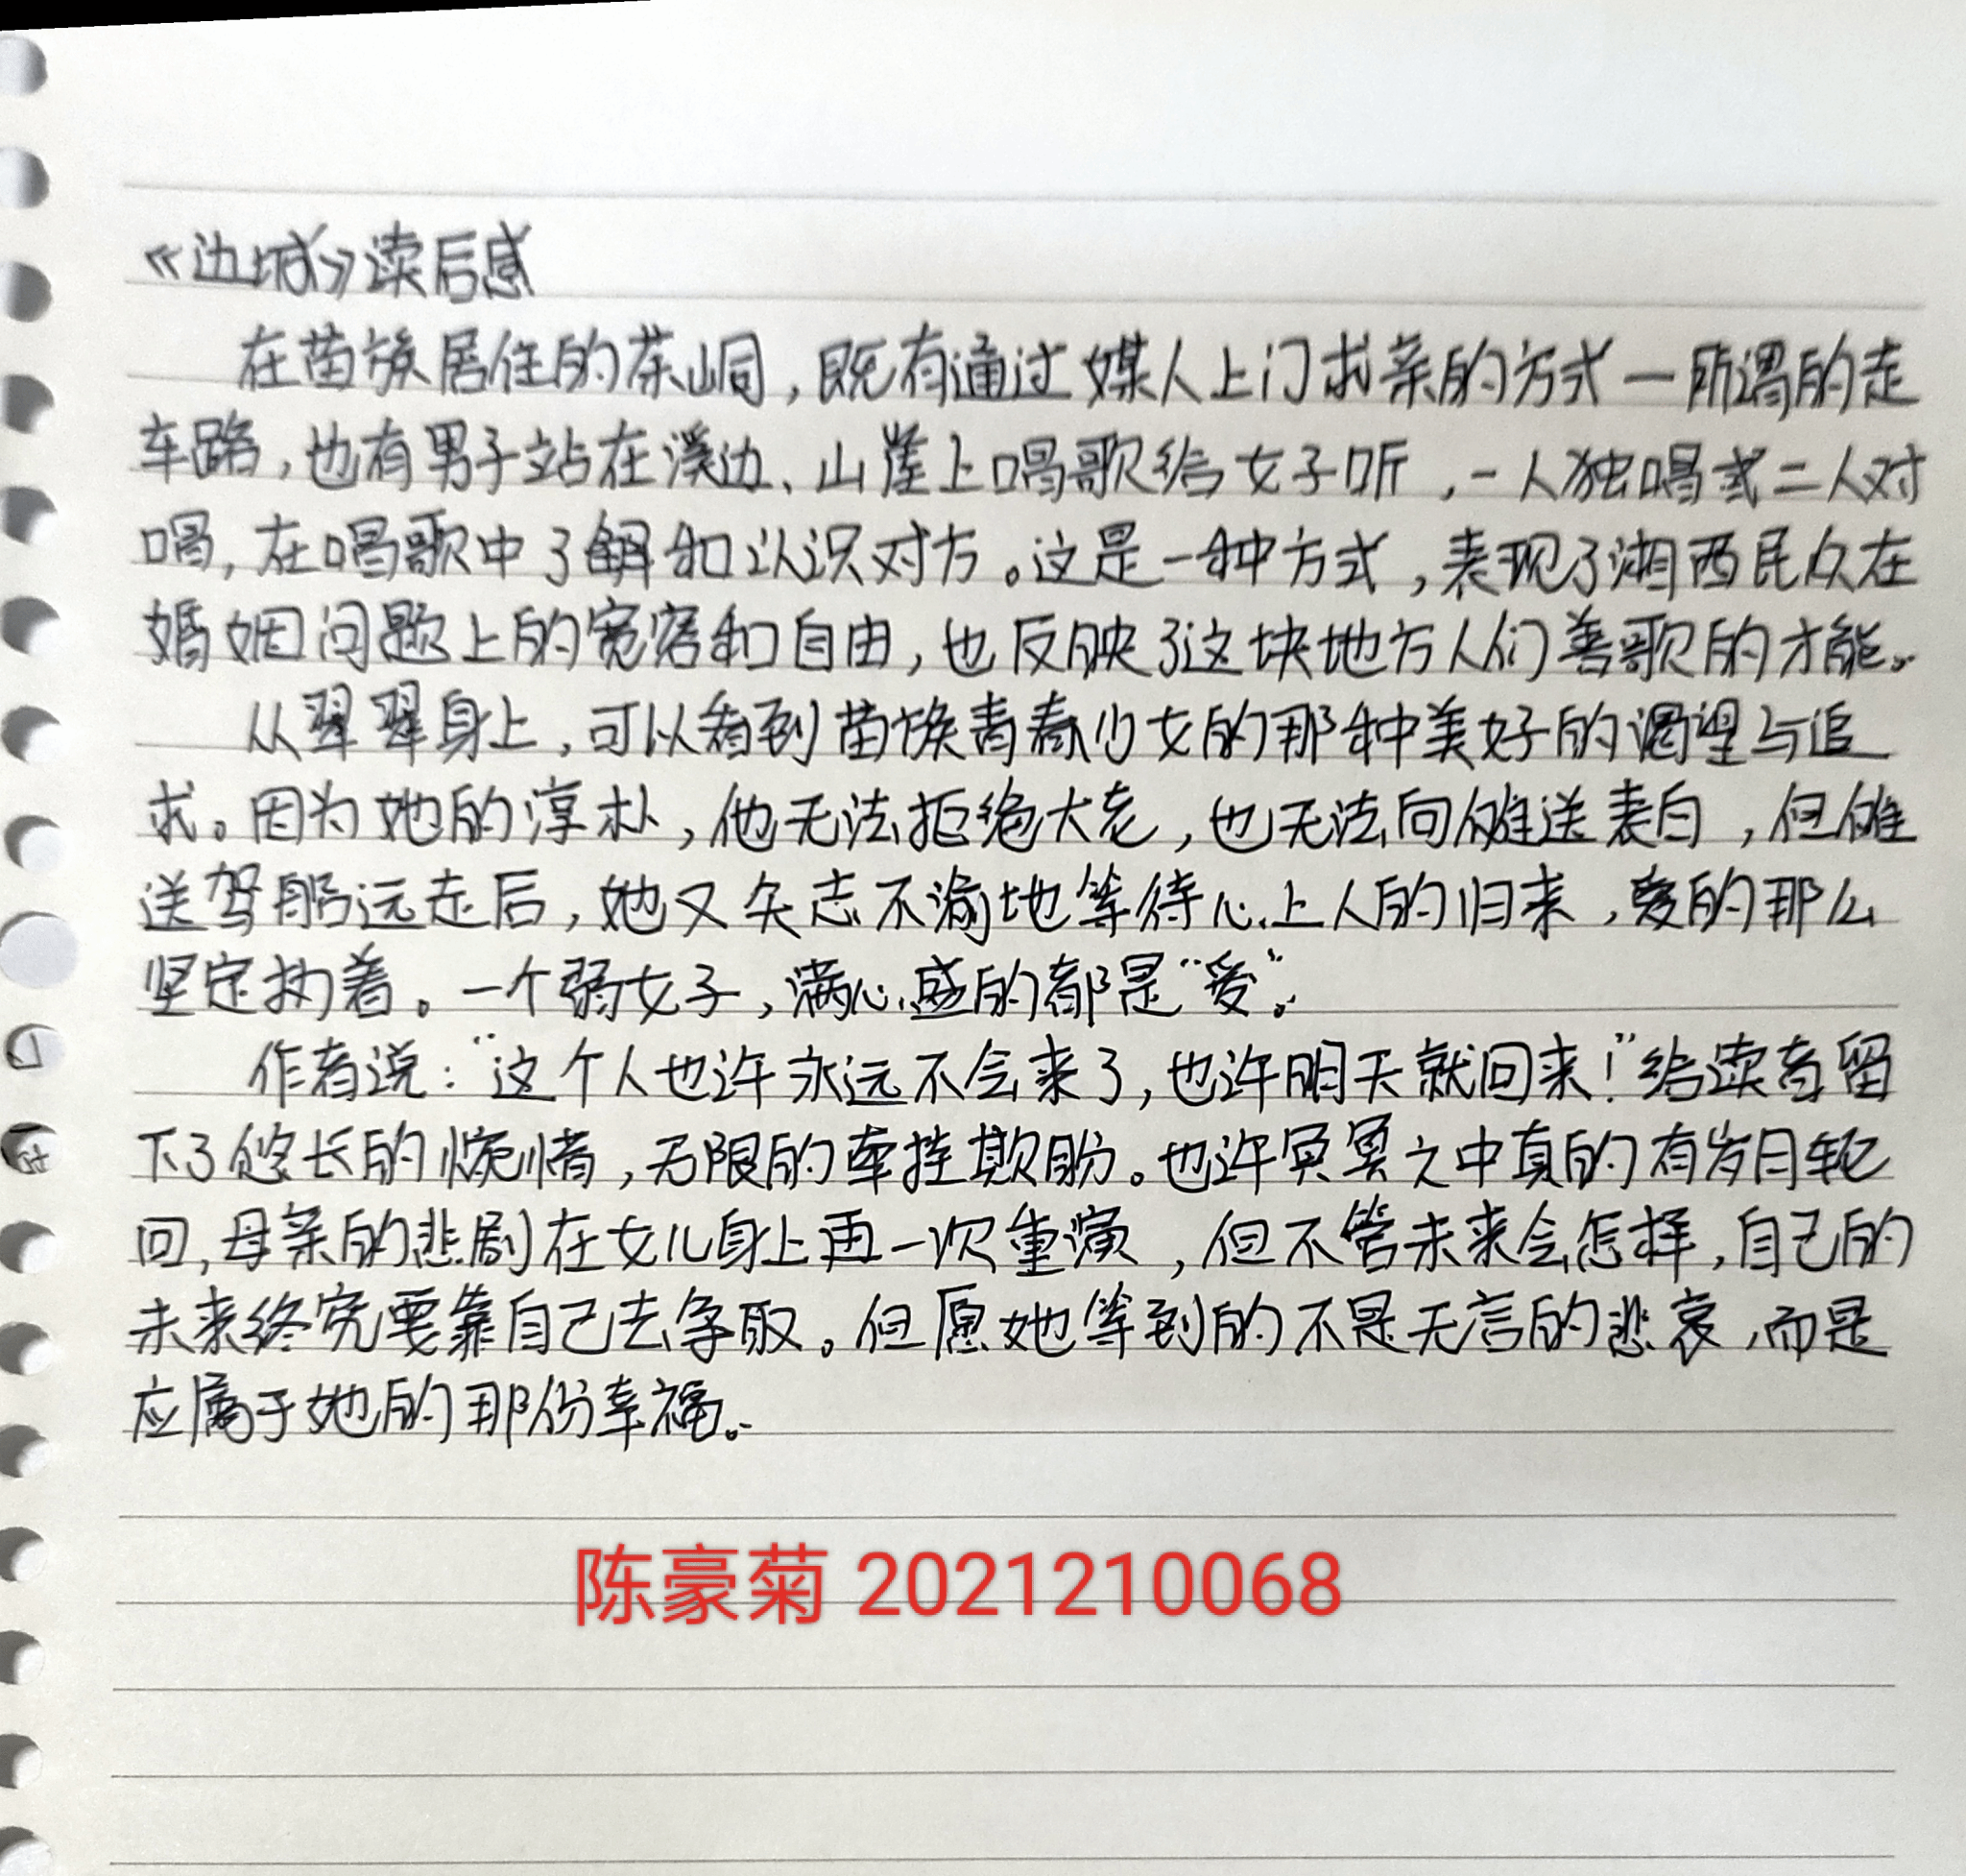 《边城》读后感
在苗族居住的茶峒，既有通过媒人上门求亲的方式—所谓的走
车路，也有男子站在溪边、山崖上唱歌给女子听，一人独唱或二人对
唱，在唱歌中了解和认识对方。这是一种方式，表现了湘西民众在
婚姻问题上的宽容和自由，也反映了这块地方人们善歌的才能。
从翠翠身上，可以看到苗族青春少女的那种美好的渴望与追
求。因为她的淳朴，他无法拒绝大老，也无法向傩送表白，但傩
送驾船远走后，她又矢志不渝地等待心上人的归来，爱的那么
坚定执着。一个弱女子，满心盛的都是“爱”。
作者说：“这个人也许永远不会来了，也许明天就回来！”给读者留
下了悠长的惋惜，无限的牵挂欺盼。也许冥冥之中真的有岁月轮
回，母亲的悲剧在女儿身上再一次重演，但不管未来会怎样，自己的
未来终究要靠自己去争取。但愿她等到的不是无言的悲哀，而是
应属于她的那份幸福。
陈豪菊 2021210068